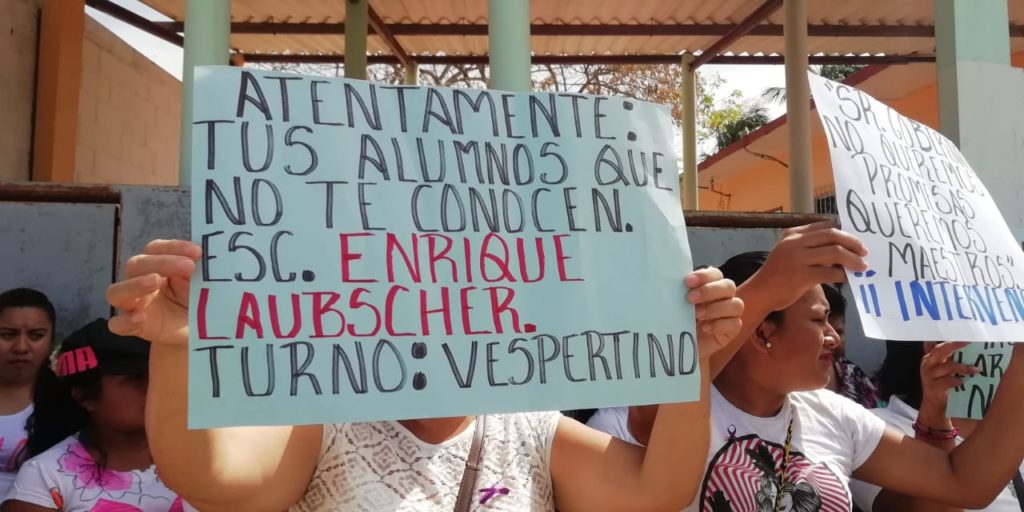 ATENTAMENTE:
TUS ALUMNOS QUE
NO TE CONOCEN.
ESC. ENRIQUE
LAUBSCHER.
TURNO: VESPERTINO
"SR.
NO QUEREMOS
PROMESAS
QUEREMOS
MAESTROS"
¡¡ INTERVEN